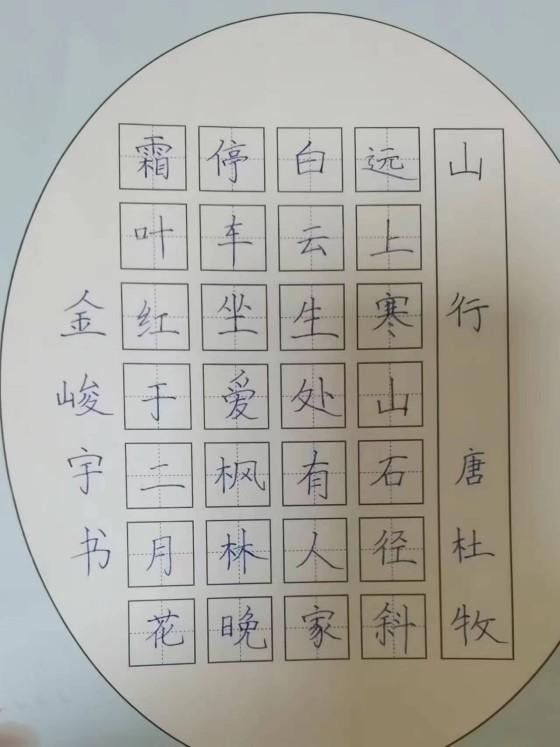 山行 唐 杜牧
远上寒山石径斜
白云生处有人家
停车坐爱枫林晚
霜叶红于二月花
金峻宇书